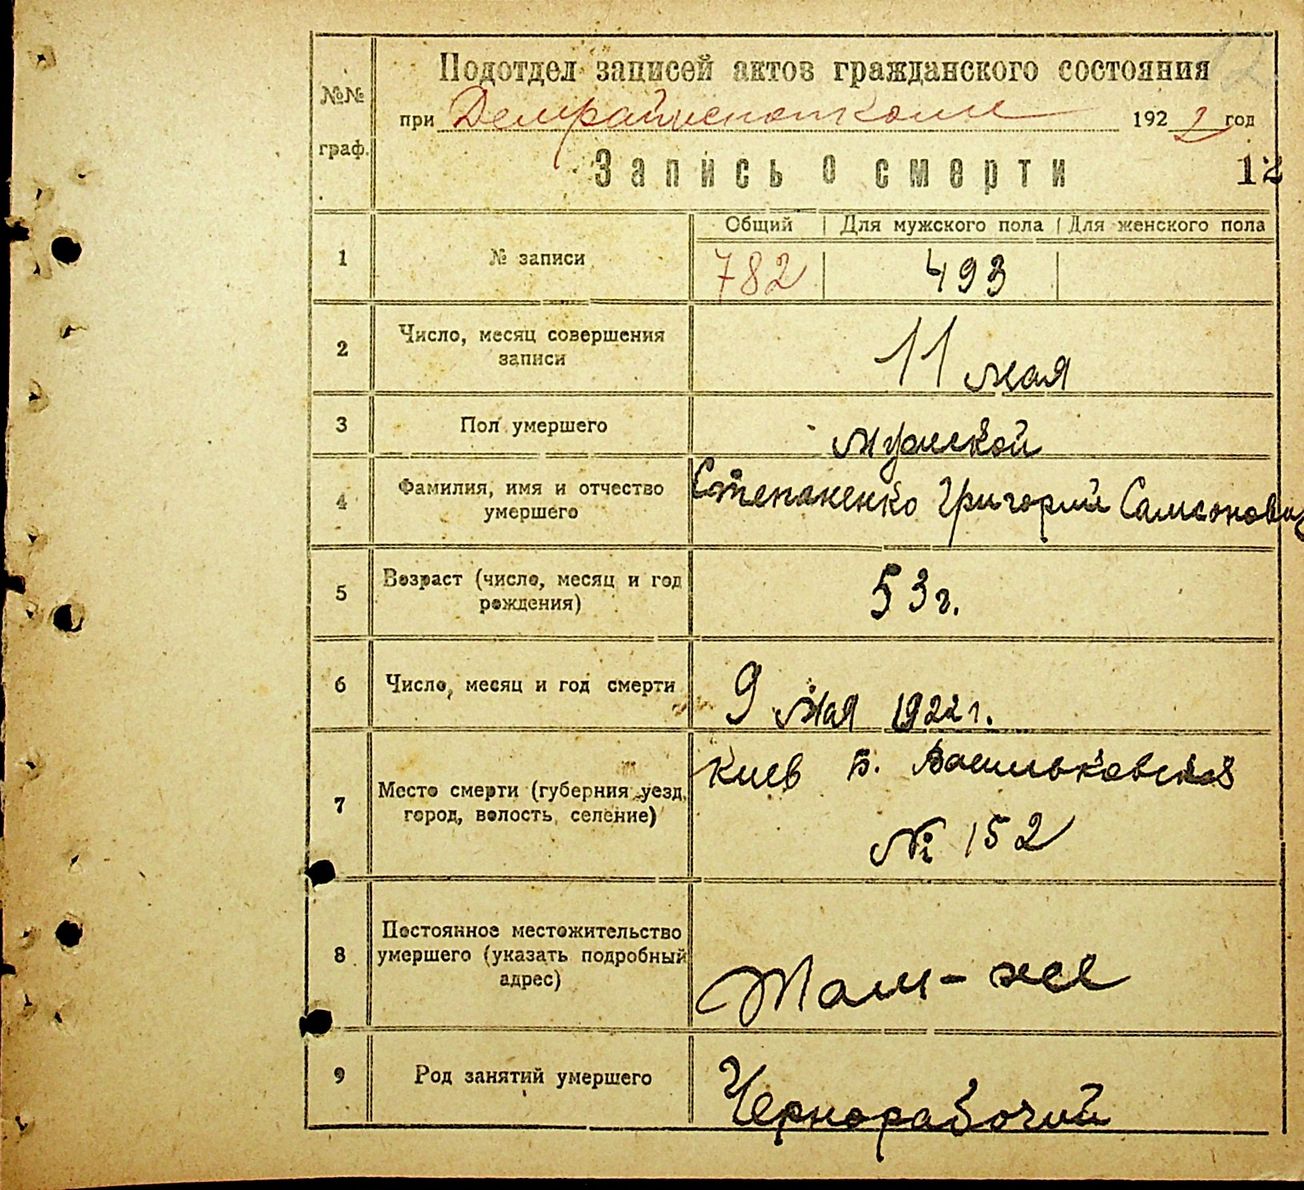 №№ граф.
Подотдел записей актов гражданского состояния
при Демрайисполкоме 1922 год
Запись о смерти
12
Общий Для мужского пола Для женского пола
1 № записи 782 493
2 Число, месяц совершения
записи
11 мая
3 Пол умершего мужской
4 Фамилия, имя и отчество
умершего
Степаненко Григорий Самсонович
5 Возраст (число, месяц и год
рождения)
53 г.
6 Число, месяц и год смерти 9 мая 1922 г.
7 Место смерти (губерния уезд,
город, волость, селение)
Киев Б. Васильковская
№ 152
8 Постоянное местожительство
умершего (указать подробный
адрес)
Там-же
9 Род занятий умершего Чернорабочий